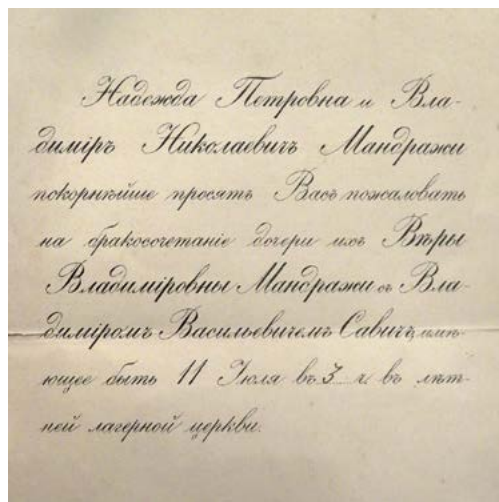 Надежда Петровна и Вла-
димiръ Николаевичъ Мандражи
покорнѣйше просятъ Васъ пожаловать
на бракосочетанiе дочери ихъ Вѣры
Владимiровны Мандражи съ Вла-
димiромъ Васильевичемъ Савичъ, имѣ-
ющее быть 11 Iюля въ 3 ч. въ лѣт-
ней лагерной церкви.